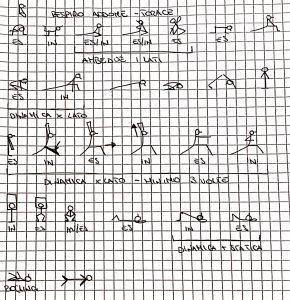 RESPIRO ADDOME - TORACE
ES IN ES/IN ES/IN ES ES IN
AMBEDUE I LATI
ES IN ES
DINAMICA X LATO
ES IN ES IN ES IN
DINAMICA X LATO - MINIMO 3 VOLTE
IN ES IN/ES ES IN ES
DINAMICA + STATICA